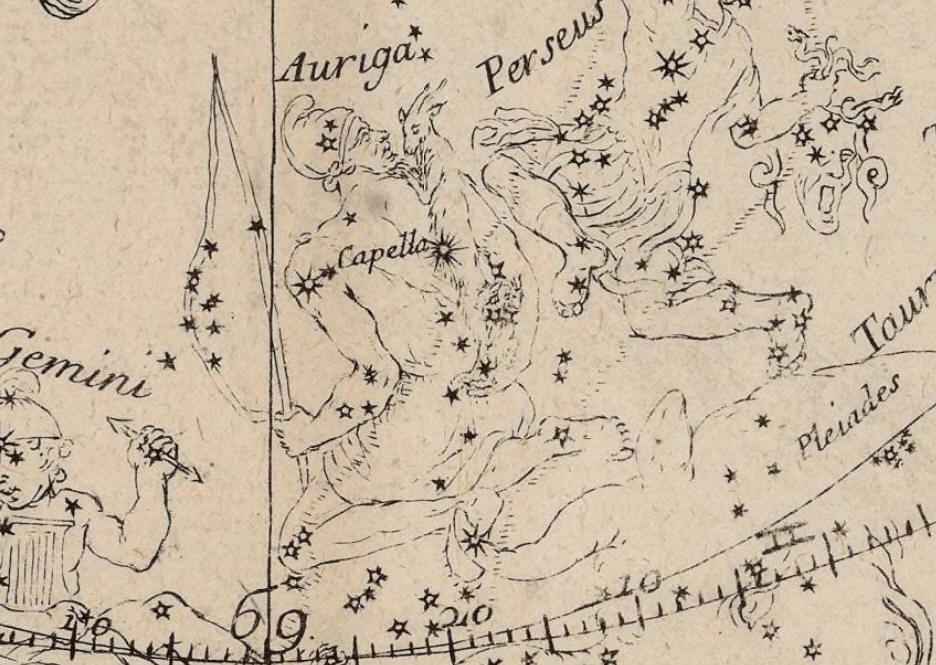 Auriga
Perseus
Capella
Gemini
Taur
Pleiades
♊
10
20
10
♋